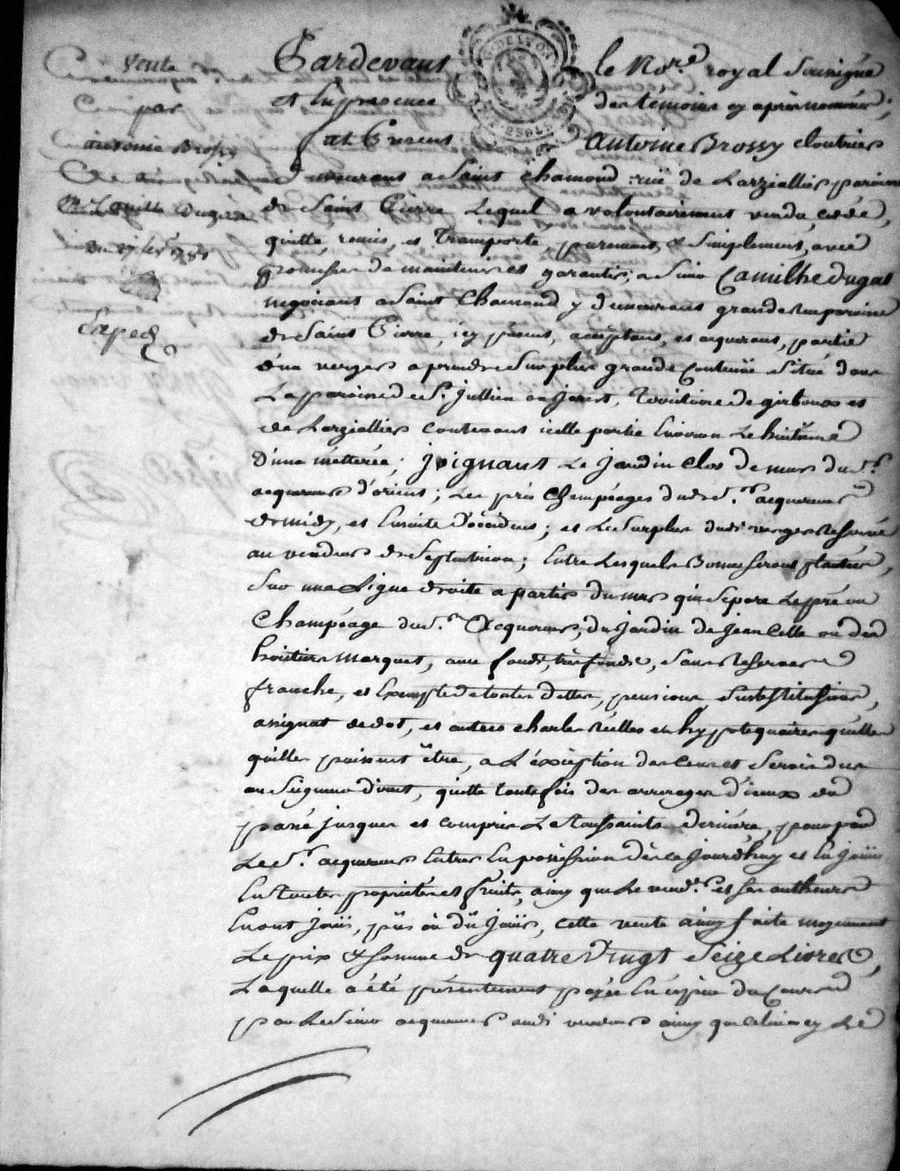 Vente
par
antoine Brossy
A
Mr Camille Dugas
Exped
DE LYON
Pardevant le No.re royal Sousigné
et En presence des témoins cy après nommés;
fut Present antoine Brossy cloutier
demeurant a Saint chamond rüe de Larziallier paroisse
de Saint Pierre Lequel a volontairement vendu, cédé,
quitté, remis, et Transporté, purement, & Simplement, avec
promesse de maintenir et garantir, a Sieur Camilhe dugas
negociant a Saint Chamond y demeurant grande rue paroisse
de Saint Pierre, icy présent, acceptant, et acquerant, partie
d'un verger a prendre Sur plus grande Contenüe Situé dans
La paroisse de St. Jullien en Jarest, Territoire de
et de Larziallier contenant icelle partie Environ Le huitième
d'une métterée; Joignant Le Jardin clos de murs du Sr.
acquereur d'orient; Les prés Champéages dudt Sr. acquereur
de midy, et Ensuite d'occident; et Le Surplus dudt verger Reservé
au vendeur de Septentrion; Entre Lesquels Bornes Seront plantées,
Sur une Ligne droite a partir du mur qui Separe Le pré ou
Champéage du Sr. Acquereur, du Jardin de Jean Celle ou des
hoirs Marquet, avec fonds, tréfonds, Sans Reserve
franche, et Exempte de toutes dettes, pensions Substitutions,
assignat de dot, et autres charges réelles et hypotequaires quelles
qu'elles puissent être, a L'exception des Cens et Servis dus
au Seigneur direct, quitte toutefois des arrerages d'iceux du
passé jusques et compris La Toussaints derniere, pour par
Le Sr. acquereur Entrer En possession dès ce Jourd'huy et En Joüir
En toute proprieté et fruits, ainsy que Le vendr. et Ses autheurs
En ont Joüi, pû ou dû Joüir, cette vente ainsy faite moyenant
Le prix & somme de quatre Vingt Seize Livres,
Laquelle a été présentement payée En espèces du Cours
par Le Sieur acquereur audt vendeur ainsy que celui cy Le